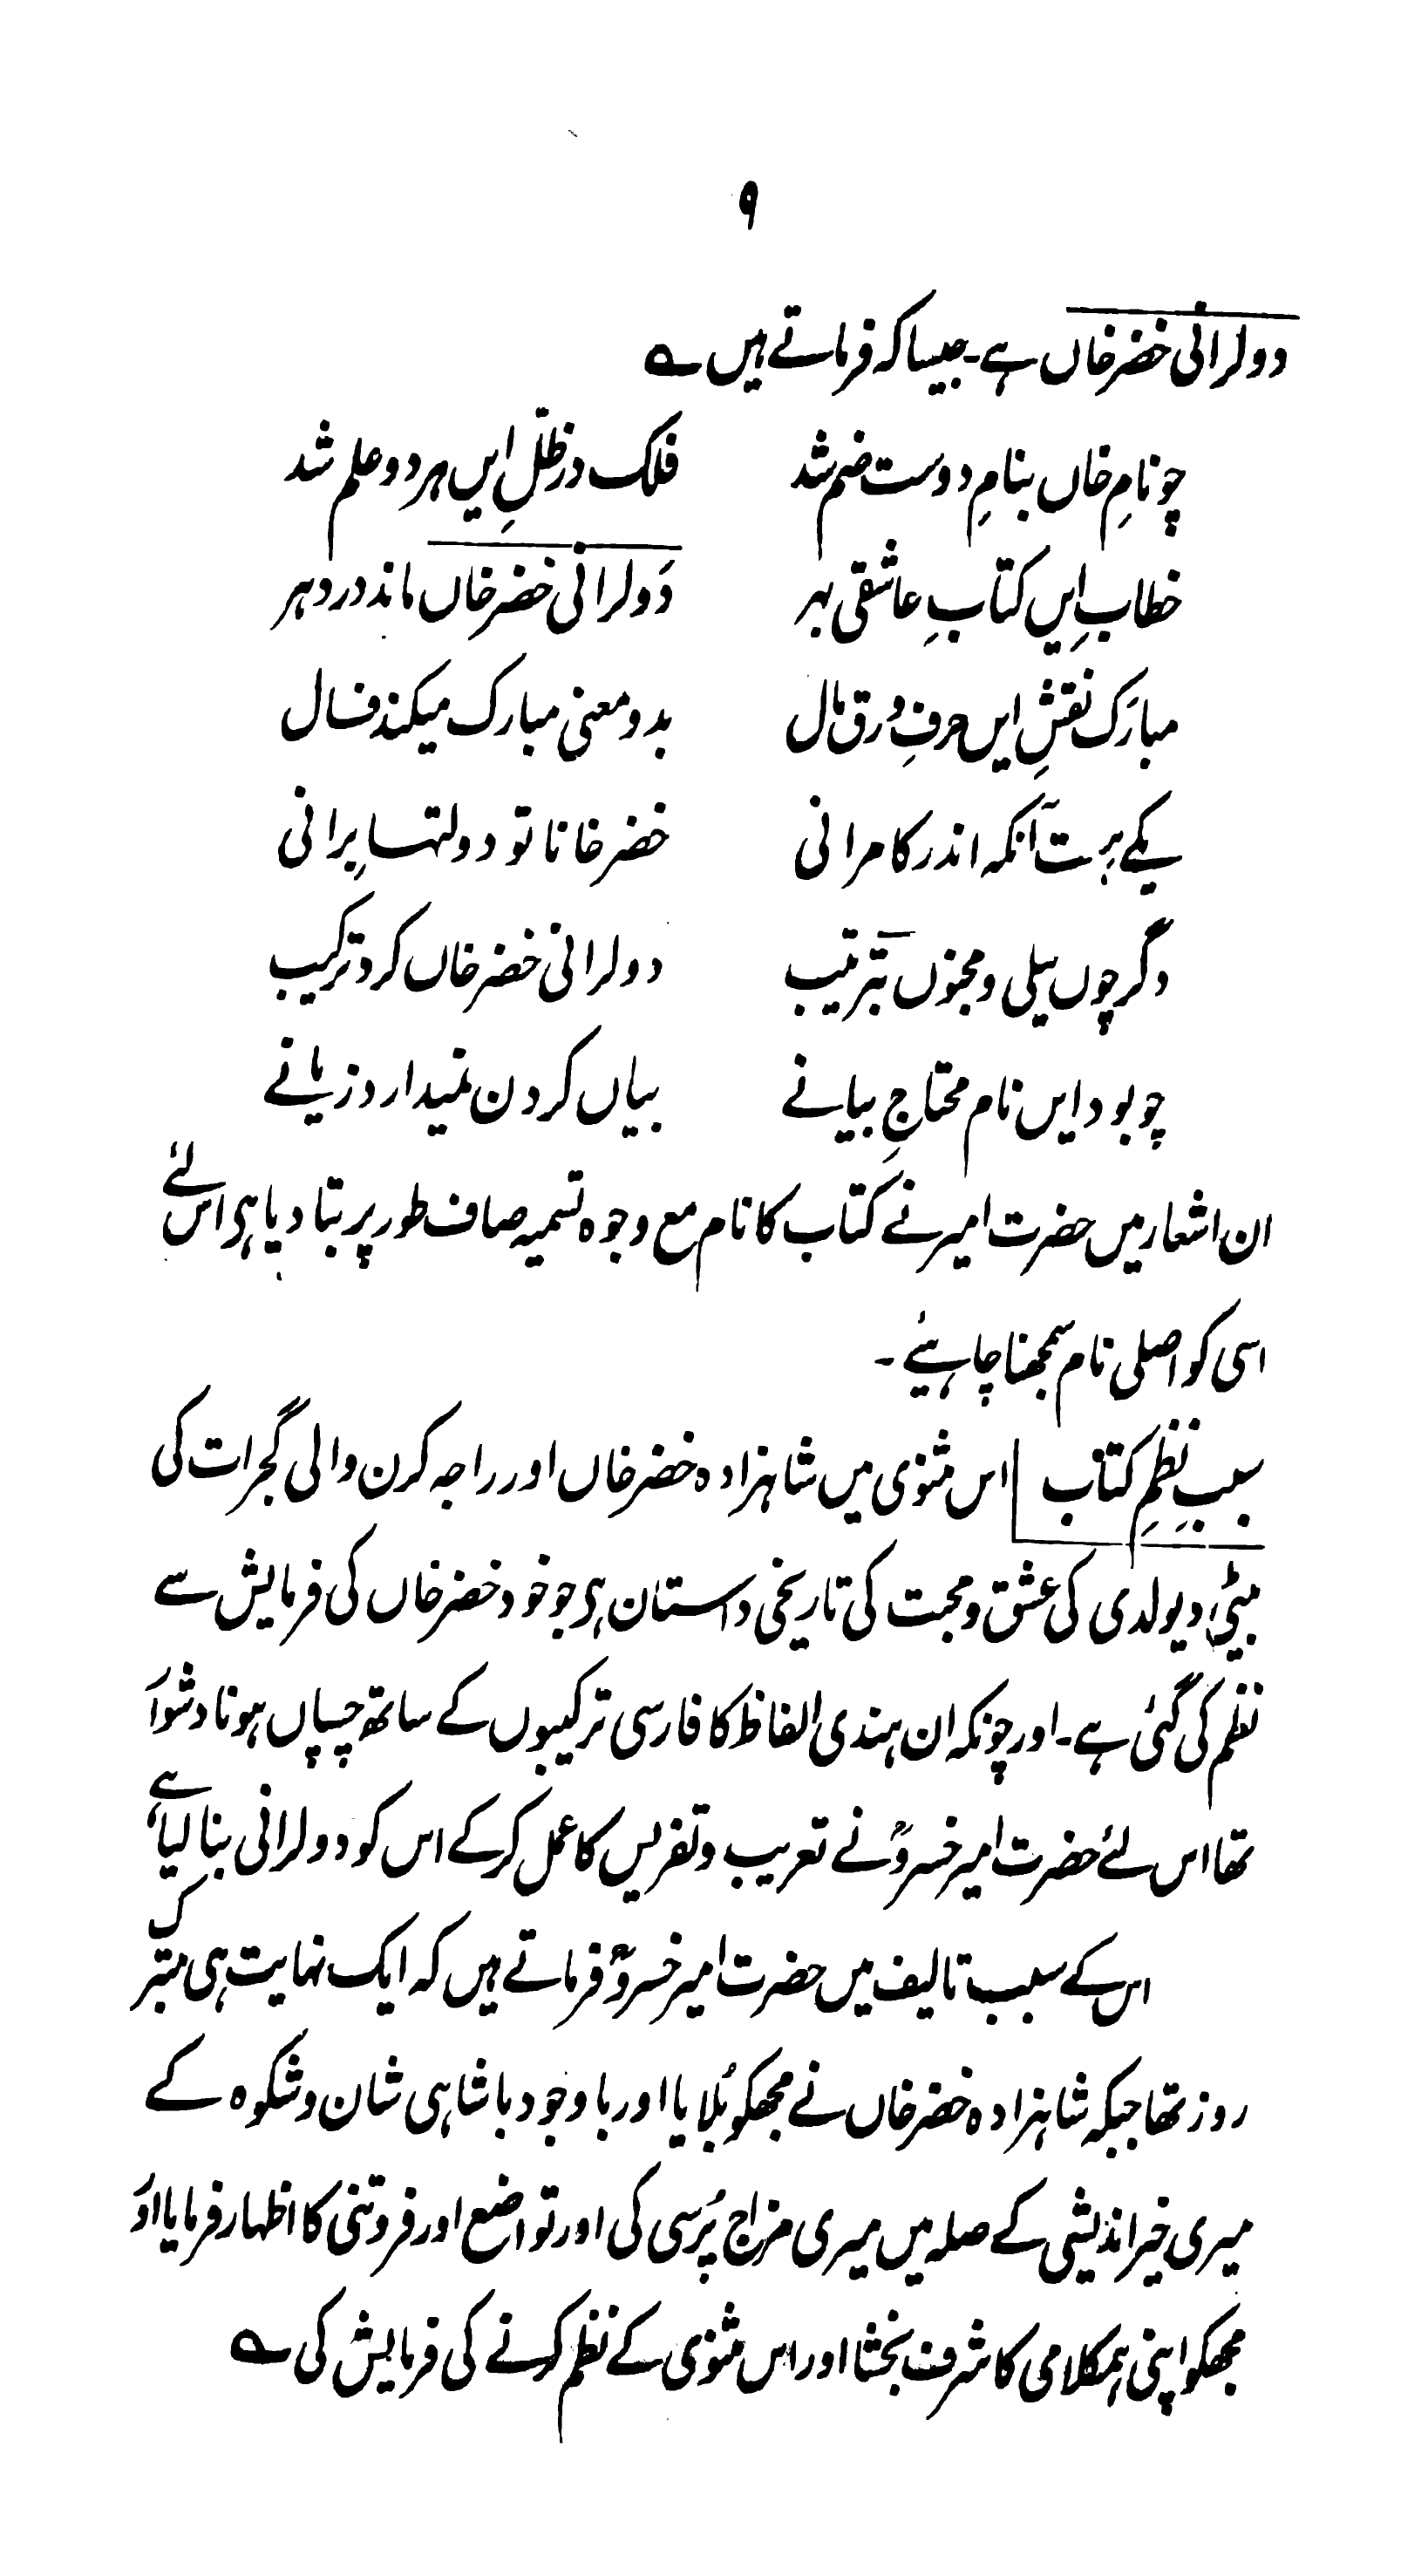 ۹
دولرانی خضرخاں ہے۔ جیسا کہ فرماتے ہیں ؎
چو نامِ خاں بنامِ دوست ضم شد فلک در ظلِّ ایں ہر دو علم شد
خطابِ ایں کتابِ عاشقی بہر دَولرانی خضرخاں ماند در دہر
مبارَک نقشِ ایں حرفِ ورق مال بدو معنی مبارک میکند فال
یکے ہست آنکہ اندر کامرانی خضرخانا تو دولتہا بِرانی
دگر چوں لیلی و مجنوں بترتیب دولرانی خضرخاں کرد ترکیب
چو بود ایں نام محتاجِ بیانے بیاں کردن نمیدارد زیانے
ان اشعار میں حضرت امیر نے کتاب کا نام مع وجوہ تسمیہ صاف طور پر بتا دیا ہی اس لئے
اسی کو اصلی نام سمجھنا چاہیئے ۔
سببِ نظمِ کتاب اس مثنوی میں شاہزادہ خضرخاں اور راجہ کرن والی گجرات کی
بیٹی دیولدی کی عشق و محبت کی تاریخی داستان ہی جو خود خضرخاں کی فرمایش سے
نظم کی گئی ہے۔ اور چونکہ ان ہندی الفاظ کا فارسی ترکیبوں کے ساتھ چسپاں ہونا دشوار
تھا اس لئے حضرت امیر خسروؒ نے تعریب و تفریس کا عمل کر کے اس کو دولرانی بنا لیا ہے
اس کے سبب تالیف میں حضرت امیر خسروؒ فرماتے ہیں کہ ایک نہایت ہی متبرک
روز تھا جبکہ شاہزادہ خضرخاں نے مجھکو بُلایا اور باوجود باشاہی شان و شکوہ کے
میری خیراندیشی کے صلہ میں میری مزاج پُرسی کی اور تواضع اور فروتنی کا اظہار فرمایا اور
مجھکو اپنی ہمکلامی کا شرف بخشا اور اس مثنوی کے نظم کرنے کی فرمایش کی ؎